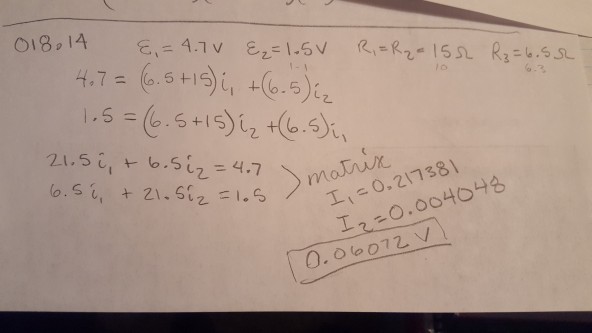 018.14 ℰ₁ = 4.7 V ℰ₂ = 1.5 V R₁ = R₂ = 15 Ω R₃ = 6.5 Ω
1.1 10 6.3
4.7 = (6.5 + 15) i₁ + (6.5) i₂
1.5 = (6.5 + 15) i₂ + (6.5) i₁
21.5 i₁ + 6.5 i₂ = 4.7
6.5 i₁ + 21.5 i₂ = 1.5
> matrix
I₁ = 0.217381
I₂ = 0.004048
0.06072 V